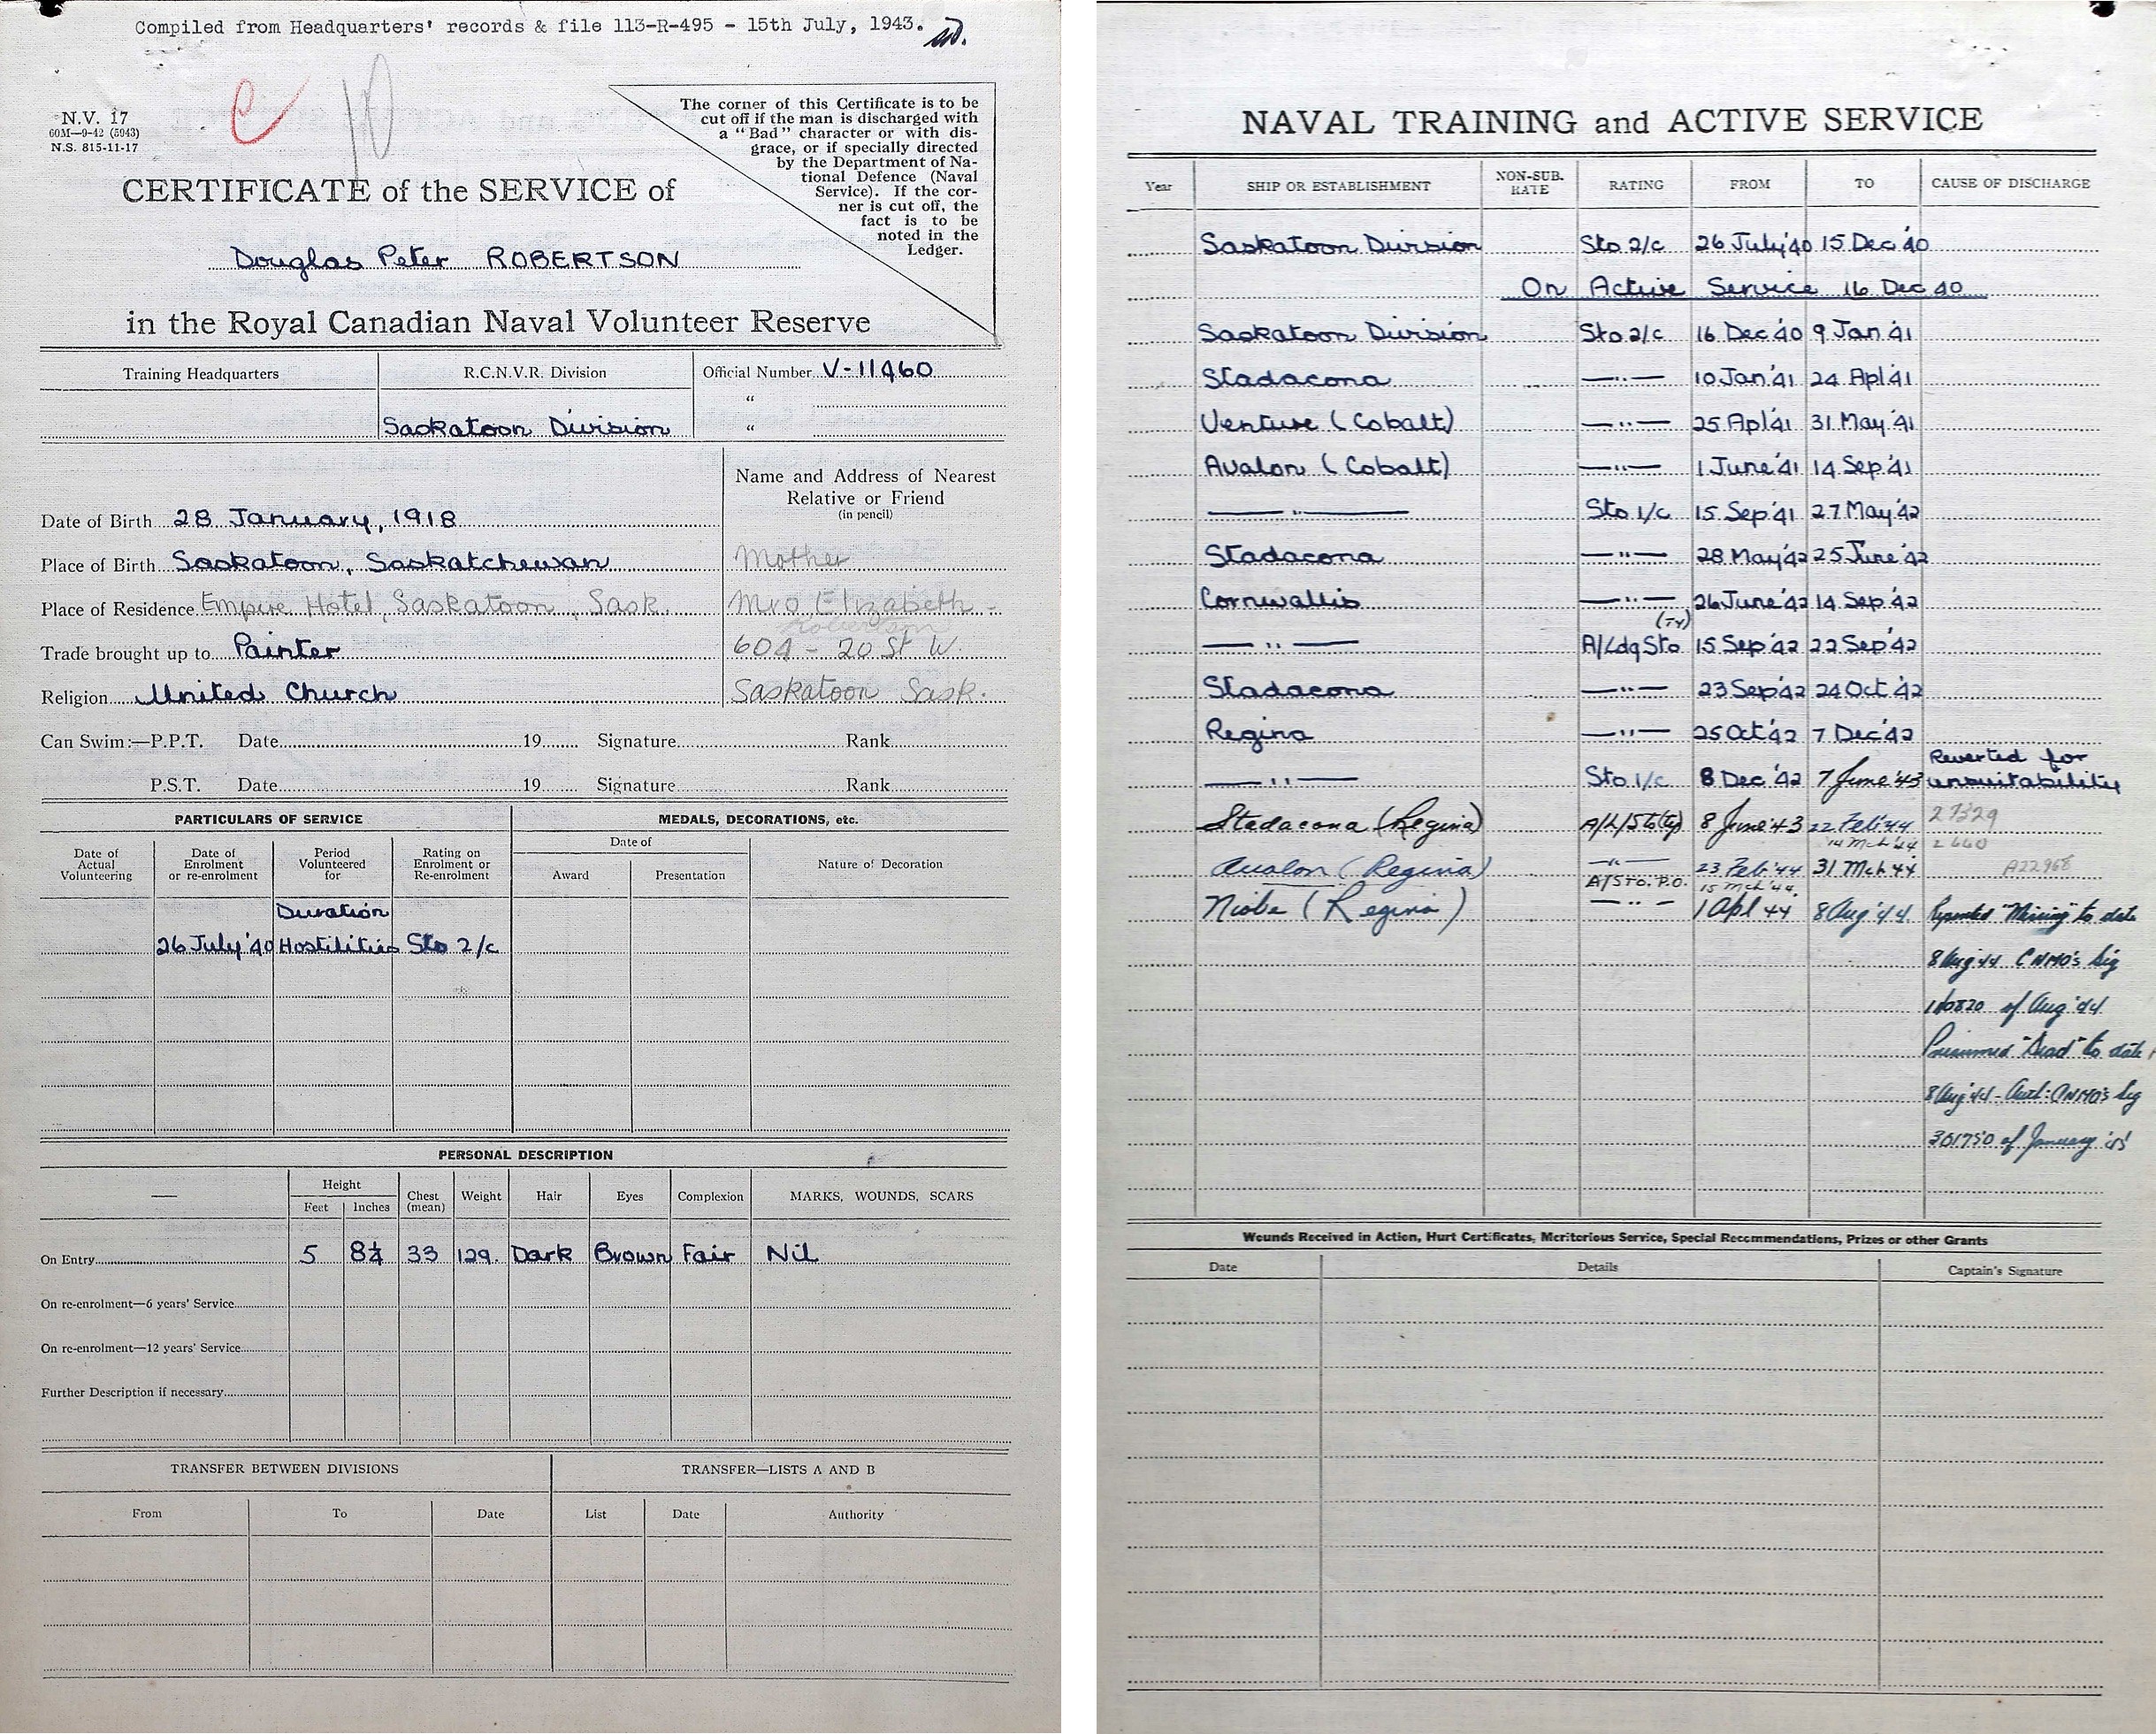 Compiled from Headquarters' records & file 113-R-495 - 15th July, 1943.
C 10
N.V. 17
60M—9-42 (5943)
N.S. 815-11-17
The corner of this Certificate is to be
cut off if the man is discharged with
a "Bad" character or with dis-
grace, or if specially directed
by the Department of Na-
tional Defence (Naval
Service). If the cor-
ner is cut off, the
fact is to be
noted in the
Ledger.
CERTIFICATE of the SERVICE of
Douglas Peter ROBERTSON
in the Royal Canadian Naval Volunteer Reserve
Training Headquarters R.C.N.V.R. Division Official Number V-11460
"
Saskatoon Division "
Name and Address of Nearest
Relative or Friend
(in pencil)
Date of Birth 28 January, 1918
Place of Birth Saskatoon, Saskatchewan Mother
Place of Residence Empire Hotel, Saskatoon, Sask. Mrs Elizabeth
Robertson
Trade brought up to Painter 604 - 20 St W.
Religion United Church Saskatoon Sask.
Can Swim:—P.P.T. Date 19 Signature Rank
P.S.T. Date 19 Signature Rank
PARTICULARS OF SERVICE MEDALS, DECORATIONS, etc.
Date of Actual Volunteering Date of Enrolment or re-enrolment Period Volunteered for Rating on Enrolment or Re-enrolment Date of Award Presentation Nature of Decoration
Duration
26 July '40 Hostilities Sto 2/c
PERSONAL DESCRIPTION
— Height Feet Inches Chest (mean) Weight Hair Eyes Complexion MARKS, WOUNDS, SCARS
On Entry 5 8¼ 33 129. Dark Brown Fair Nil
On re-enrolment—6 years' Service
On re-enrolment—12 years' Service
Further Description if necessary
TRANSFER BETWEEN DIVISIONS TRANSFER—LISTS A AND B
From To Date List Date Authority
NAVAL TRAINING and ACTIVE SERVICE
Year SHIP OR ESTABLISHMENT NON-SUB. RATE RATING FROM TO CAUSE OF DISCHARGE
Saskatoon Division Sto 2/c 26 July '40 15 Dec '40
On Active Service 16 Dec 40
Saskatoon Division Sto 2/c 16 Dec '40 9 Jan '41
Stadacona —"— 10 Jan '41 24 Apl '41
Venture (Cobalt) —"— 25 Apl '41 31 May '41
Avalon (Cobalt) —"— 1 June '41 14 Sep '41
—"— Sto 1/c 15 Sep '41 27 May '42
Stadacona —"— 28 May '42 25 June '42
Cornwallis —"— 26 June '42 14 Sep '42
(Ty)
—"— A/Ldg Sto 15 Sep '42 22 Sep '42
Stadacona —"— 23 Sep '42 24 Oct '42
Regina —"— 25 Oct '42 7 Dec '42
Reverted for
—"— Sto 1/c 8 Dec '42 7 June '43 unsuitability
Stadacona (Regina) A/L/Sto(ty) 8 June '43 22 Feb '44 27329
14 Mch '44 2640
Avalon (Regina) —"— 23 Feb '44 31 Mch 44 A22968
A/STO. P.O. 15 Mch '44.
Niobe (Regina) —"— 1 Apl 44 8 Aug '44 Reported "Missing" to date
8 Aug '44 CNMO's Sig
of Aug '44
Presumed "Dead" to date
8 Aug '44 - Auth: CNMO's Sig
301750 of January '45
Wounds Received in Action, Hurt Certificates, Meritorious Service, Special Recommendations, Prizes or other Grants
Date Details Captain's Signature